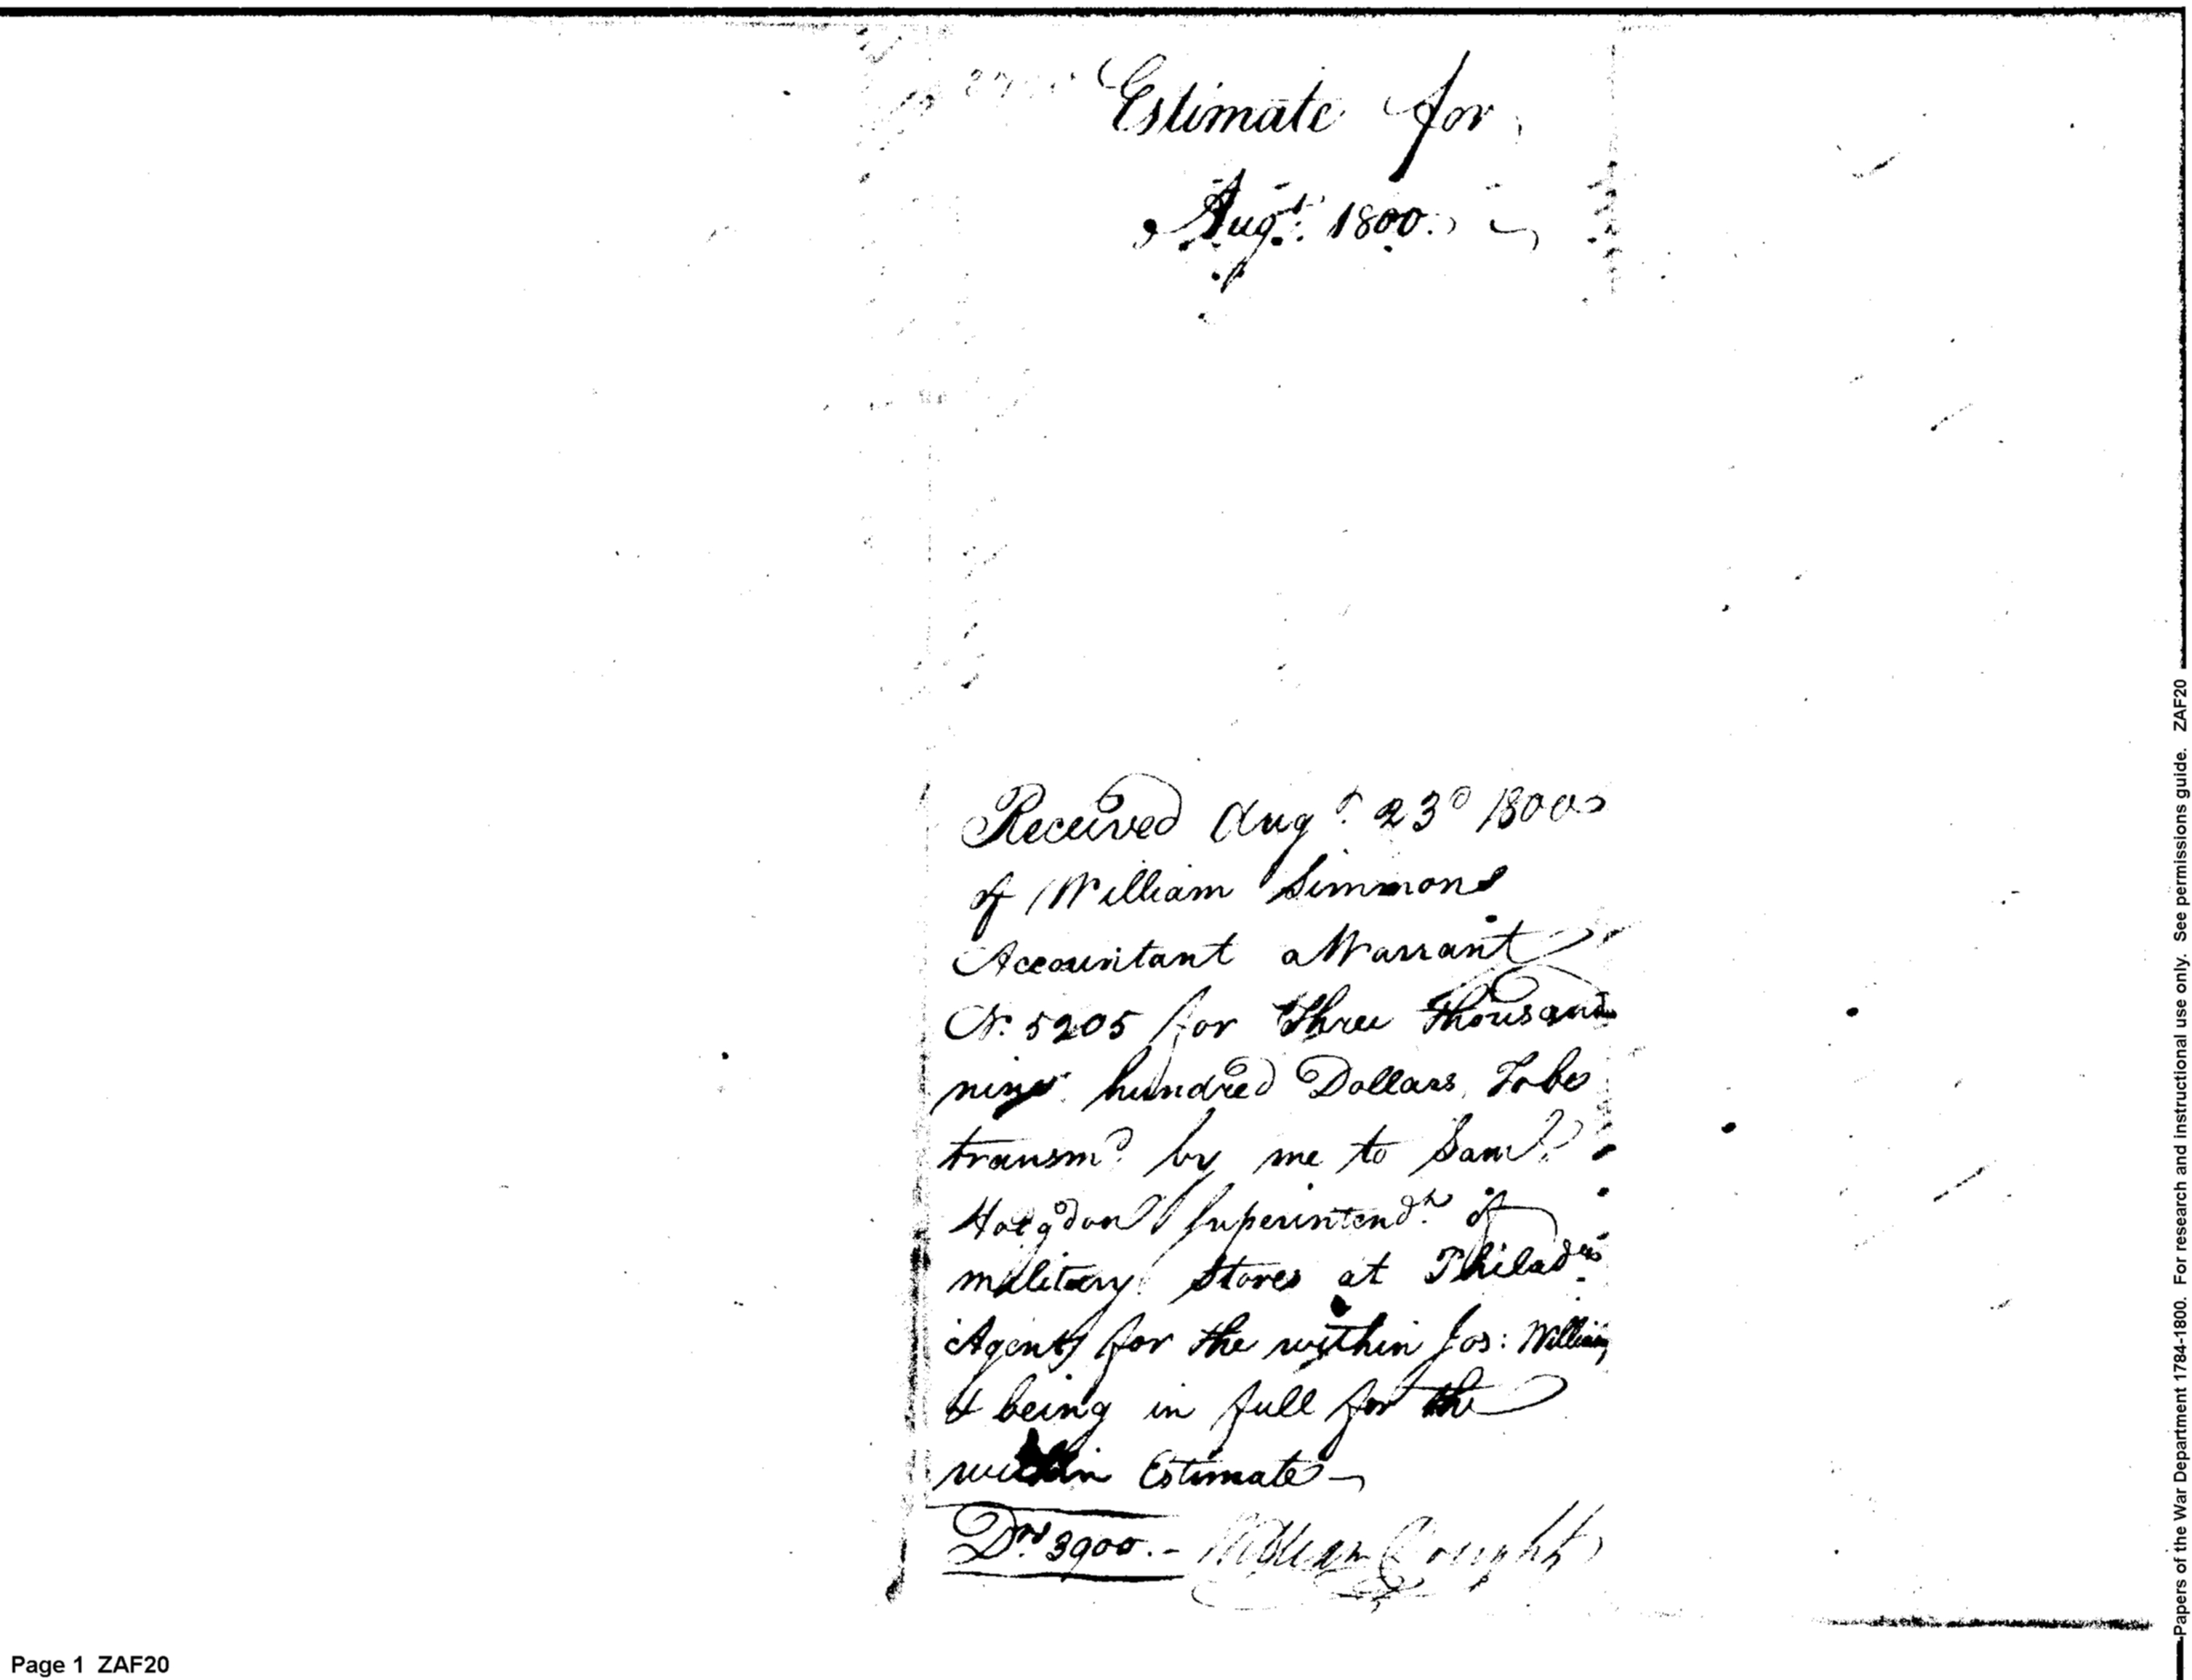 Estimate for
Augt. 1800.
Received Augt. 23d 1800
of William Simmons
Accountant a Warrant
No. 5205 for Three thousand
nine hundred Dollars, To be
transmd. by me to Saml.
Hodgdon Superintendt. of
military Stores at Philada.
Agent for the within Jos: Williams
& being in full for the
within Estimate
Drs 3900.- William
Page 1 ZAF20
Papers of the War Department 1784-1800. For research and instructional use only. See permissions guide. ZAF20